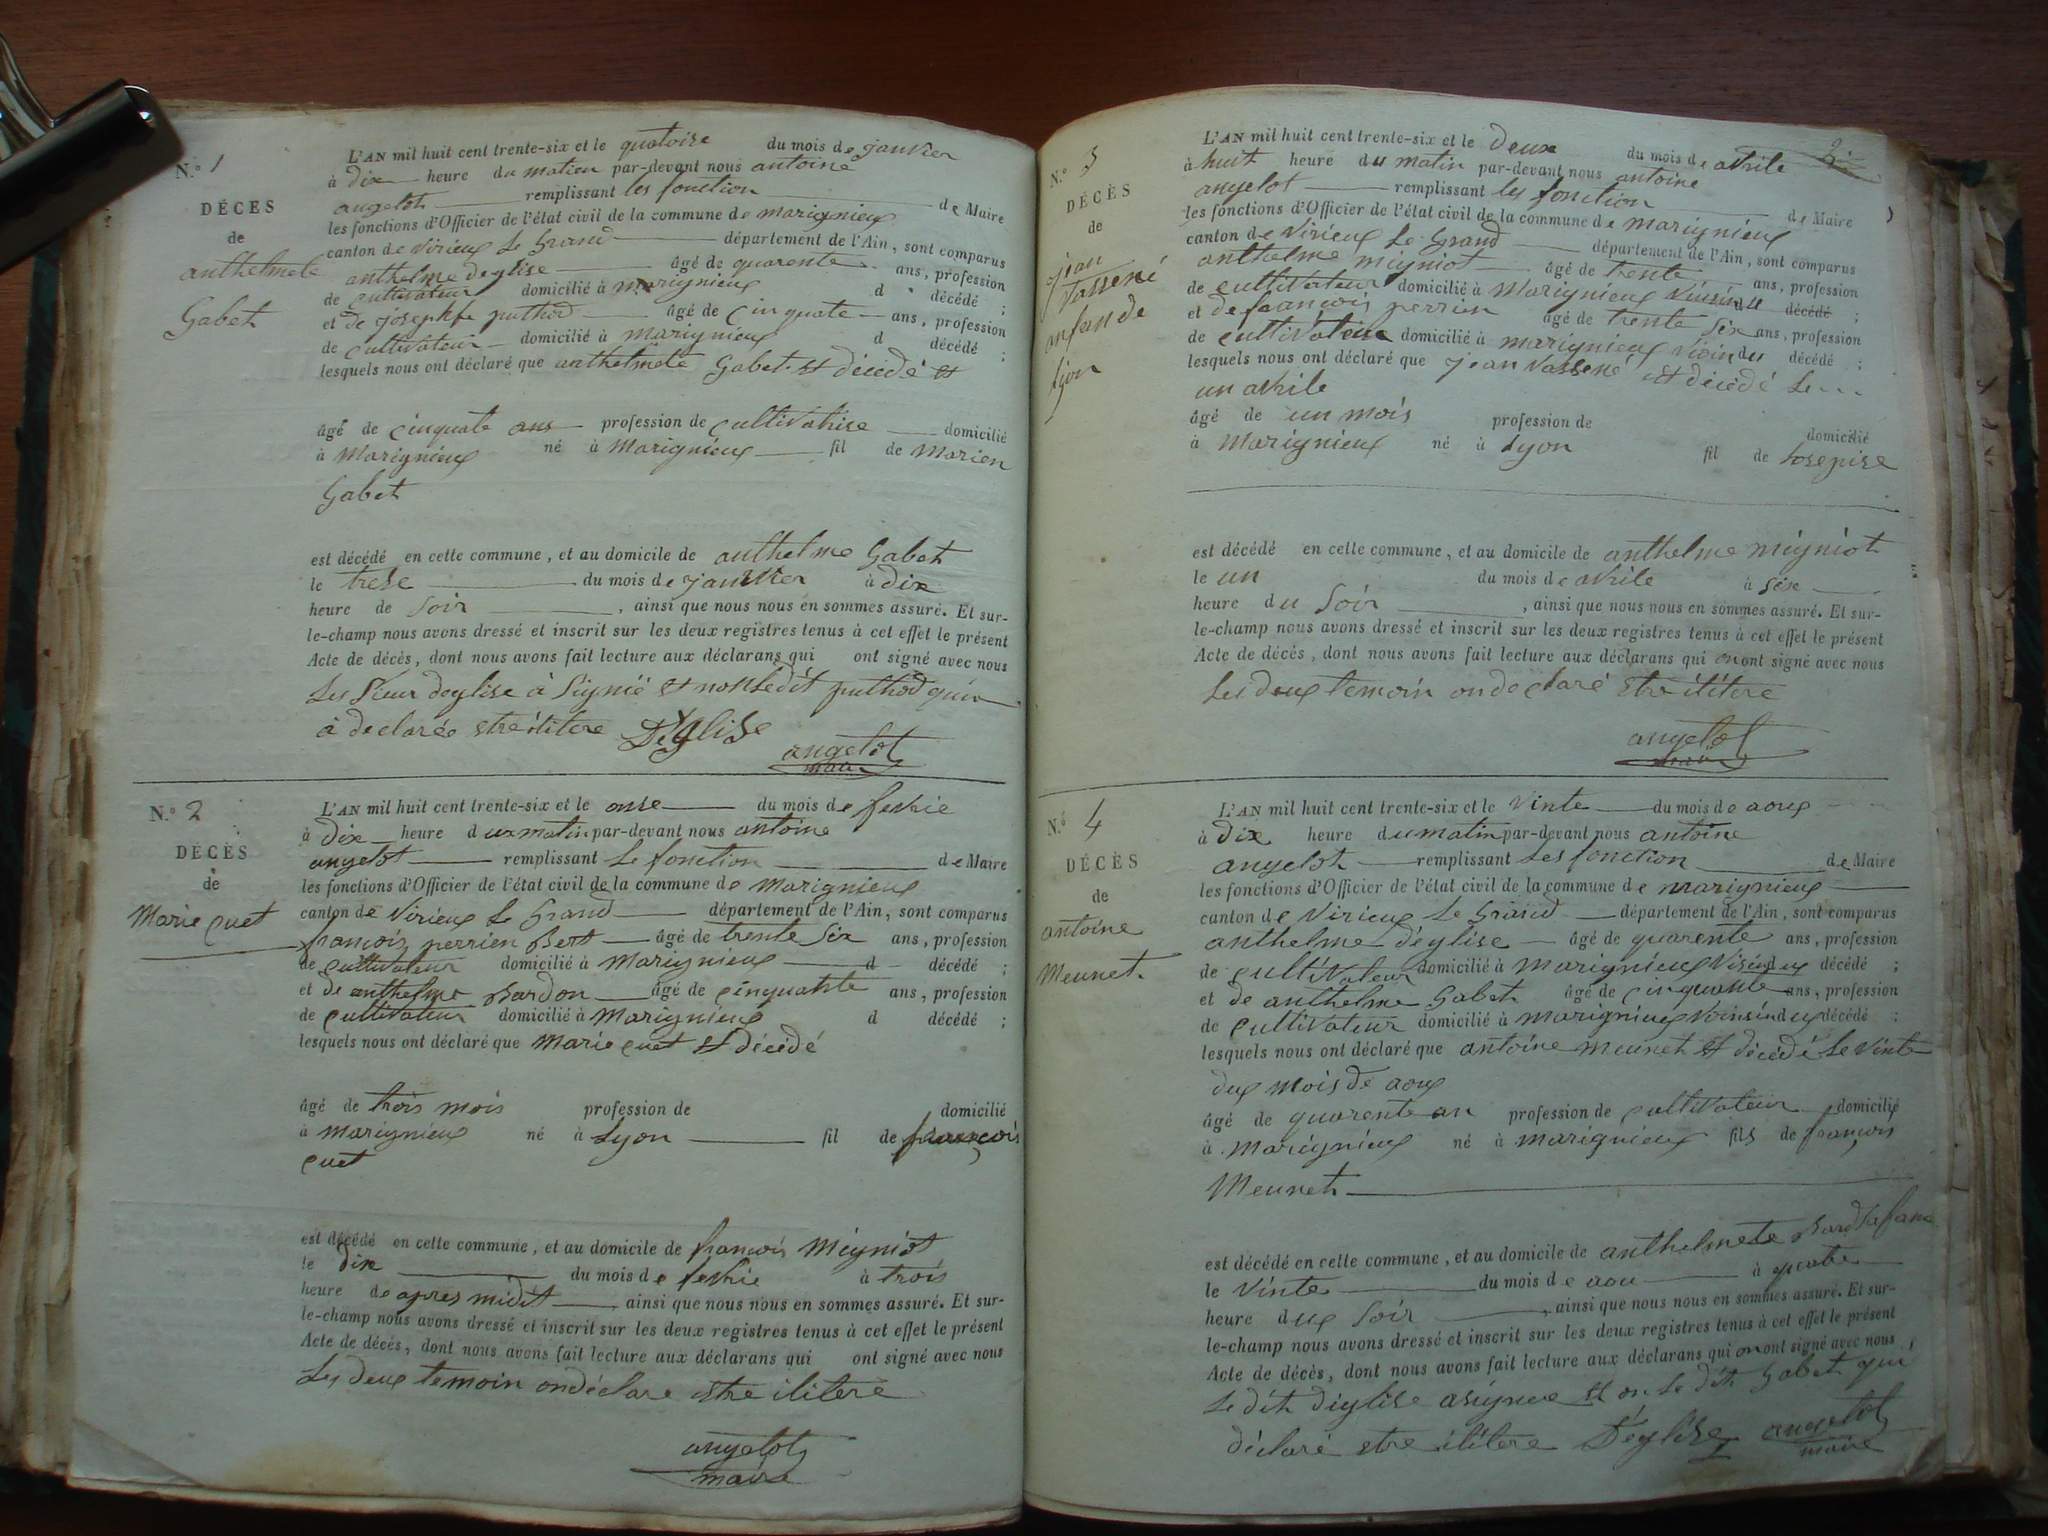 N.o 1
DÉCES
de
anthelmete
Gabet
L'AN mil huit cent trente-six et le quatorse du mois de janvier
à dix heure du matien par-devant nous antoine
angelot remplissant les fonction de Maire
les fonctions d'Officier de l'état civil de la commune de marignieux
canton de virieux Le Grand département de l'Ain, sont comparus
anthelme deglise âgé de quarente ans, profession
de cultivateur domicilié à marignieux d décédé ;
et de josephte puthod âgé de cinquate ans, profession
de cultivateur domicilié à marignieux d décédé ;
lesquels nous ont déclaré que anthelmete Gabet st décédé st
âgé de cinquate ans profession de cultivatrise domicilié
à Marignieux né à Marignieux fil de Marien
Gabet
est décédé en cette commune, et au domicile de anthelme Gabet
le trese du mois de janvier à dix
heure de soir , ainsi que nous nous en sommes assuré. Et sur-
le-champ nous avons dressé et inscrit sur les deux registres tenus à cet effet le présent
Acte de décès, dont nous avons fait lecture aux déclarans qui ont signé avec nous
Les sieur deglise à signié st non Ledit puthod quia
à declarée stre ilitere DEglise
angelot
maire
N.o 2
DÉCÈS
de
Marie cuet
L'AN mil huit cent trente-six et le onse du mois de fevrie
à dix heure dux matin par-devant nous antoine
angelot remplissant Le fonction de Maire
les fonctions d'Officier de l'état civil de la commune de marignieux
canton de virieux Le Grand département de l'Ain, sont comparus
françois perrien Bert âgé de trente six ans, profession
de cultivateur domicilié à Marignieux d décédé ;
et de anthelme Bardon âgé de cinquante ans, profession
de cultivateur domicilié à Marignieux d décédé ;
lesquels nous ont déclaré que Marie cuet st décédé
âgé de trois mois profession de domicilié
à marignieux né à Lyon fil de françois
cuet
est décédé en cette commune, et au domicile de françois Migniot
le dix du mois de fevrie à trois
heure de apres midit ainsi que nous nous en sommes assuré. Et sur-
le-champ nous avons dressé et inscrit sur les deux registres tenus à cet effet le présent
Acte de décès, dont nous avons fait lecture aux déclarans qui ont signé avec nous
Les deux temoin on déclare stre ilitere
angelot
maire
N.o 3
DÉCÈS
de
jean
Vassené
anfan de
Lyon
L'AN mil huit cent trente-six et le deux du mois de avrile
à huit heure du matin par-devant nous antoine
angelot remplissant les fonction de Maire
les fonctions d'Officier de l'état civil de la commune de marignieux
canton de virieux Le Grand département de l'Ain, sont comparus
anthelme migniot âgé de trente ans, profession
de cultivateur domicilié à Marignieux du décédé ;
et de françois perrien âgé de trente six ans, profession
de cultivateur domicilié à marignieux du décédé ;
lesquels nous ont déclaré que jean Vassené st décédé Le
un avrile
âgé de un mois profession de domicilié
à Marignieux né à Lyon fil de hosepise
est décédé en cette commune, et au domicile de anthelme migniot
le un du mois de avrile à sixe
heure du soir , ainsi que nous nous en sommes assuré. Et sur-
le-champ nous avons dressé et inscrit sur les deux registres tenus à cet effet le présent
Acte de décès, dont nous avons fait lecture aux déclarans qui onont signé avec nous
Les deux temoin on declaré stre ilitere
angelot
maire
N.o 4
DÉCÈS
de
antoine
Meunet
L'AN mil huit cent trente-six et le vinte du mois de aoux
à dix heure du matin par-devant nous antoine
angelot remplissant Les fonction de Maire
les fonctions d'Officier de l'état civil de la commune de marignieux
canton de virieux Le Grand département de l'Ain, sont comparus
anthelme déglise âgé de quarente ans, profession
de cultivateur domicilié à Marignieux décédé ;
et de anthelme Gabet âgé de cinquante ans, profession
de cultivateur domicilié à Marignieux décédé ;
lesquels nous ont déclaré que antoine meunet st décédé Le vinte
dux mois de aoux
âgé de quarente an profession de cultivateur domicilié
à Marignieux né à marignieux fils de françois
Meunet
est décédé en cette commune, et au domicile de anthelmete Bard sa fame
le vinte du mois de aou à quatre
heure dux soir , ainsi que nous nous en sommes assuré. Et sur-
le-champ nous avons dressé et inscrit sur les deux registres tenus à cet effet le présent
Acte de décès, dont nous avons fait lecture aux déclarans qui onont signé avec nous
Le dit déglise a signee st on Le dit Gabet qui
déclaré stre ilitere Déglise angelot
maire